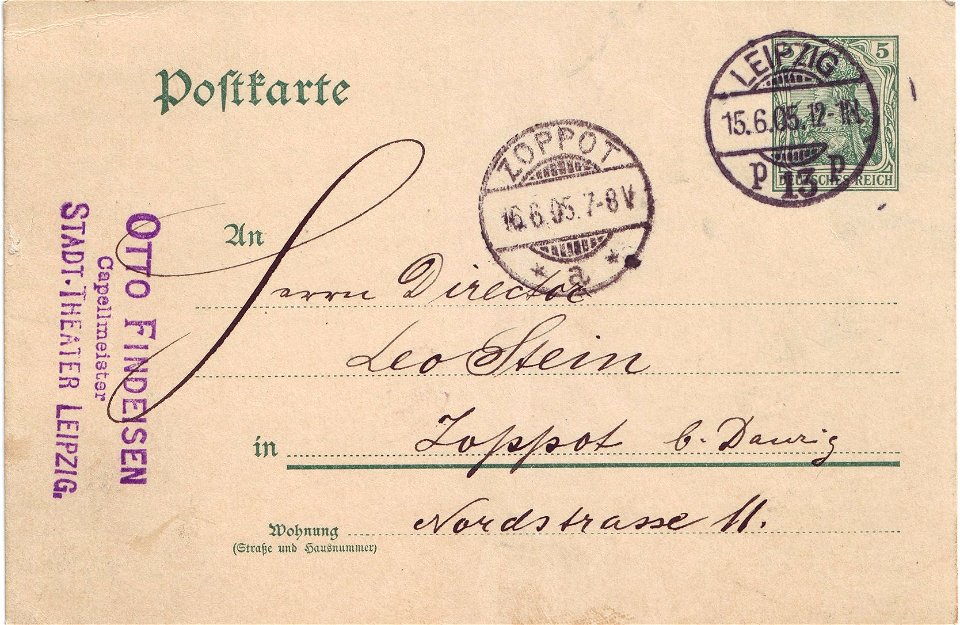 Postkarte
5
DEUTSCHES REICH
LEIPZIG
15.6.05.12-1N.
p 13 p
ZOPPOT
16.6.05.7-8V
* a *
An
Herrn Director
Leo Stein
in
Zoppot b. Danzig
Wohnung
(Straße und Hausnummer)
Nordstrasse 11.
OTTO FINDEISEN
Capellmeister
STADT-THEATER LEIPZIG.